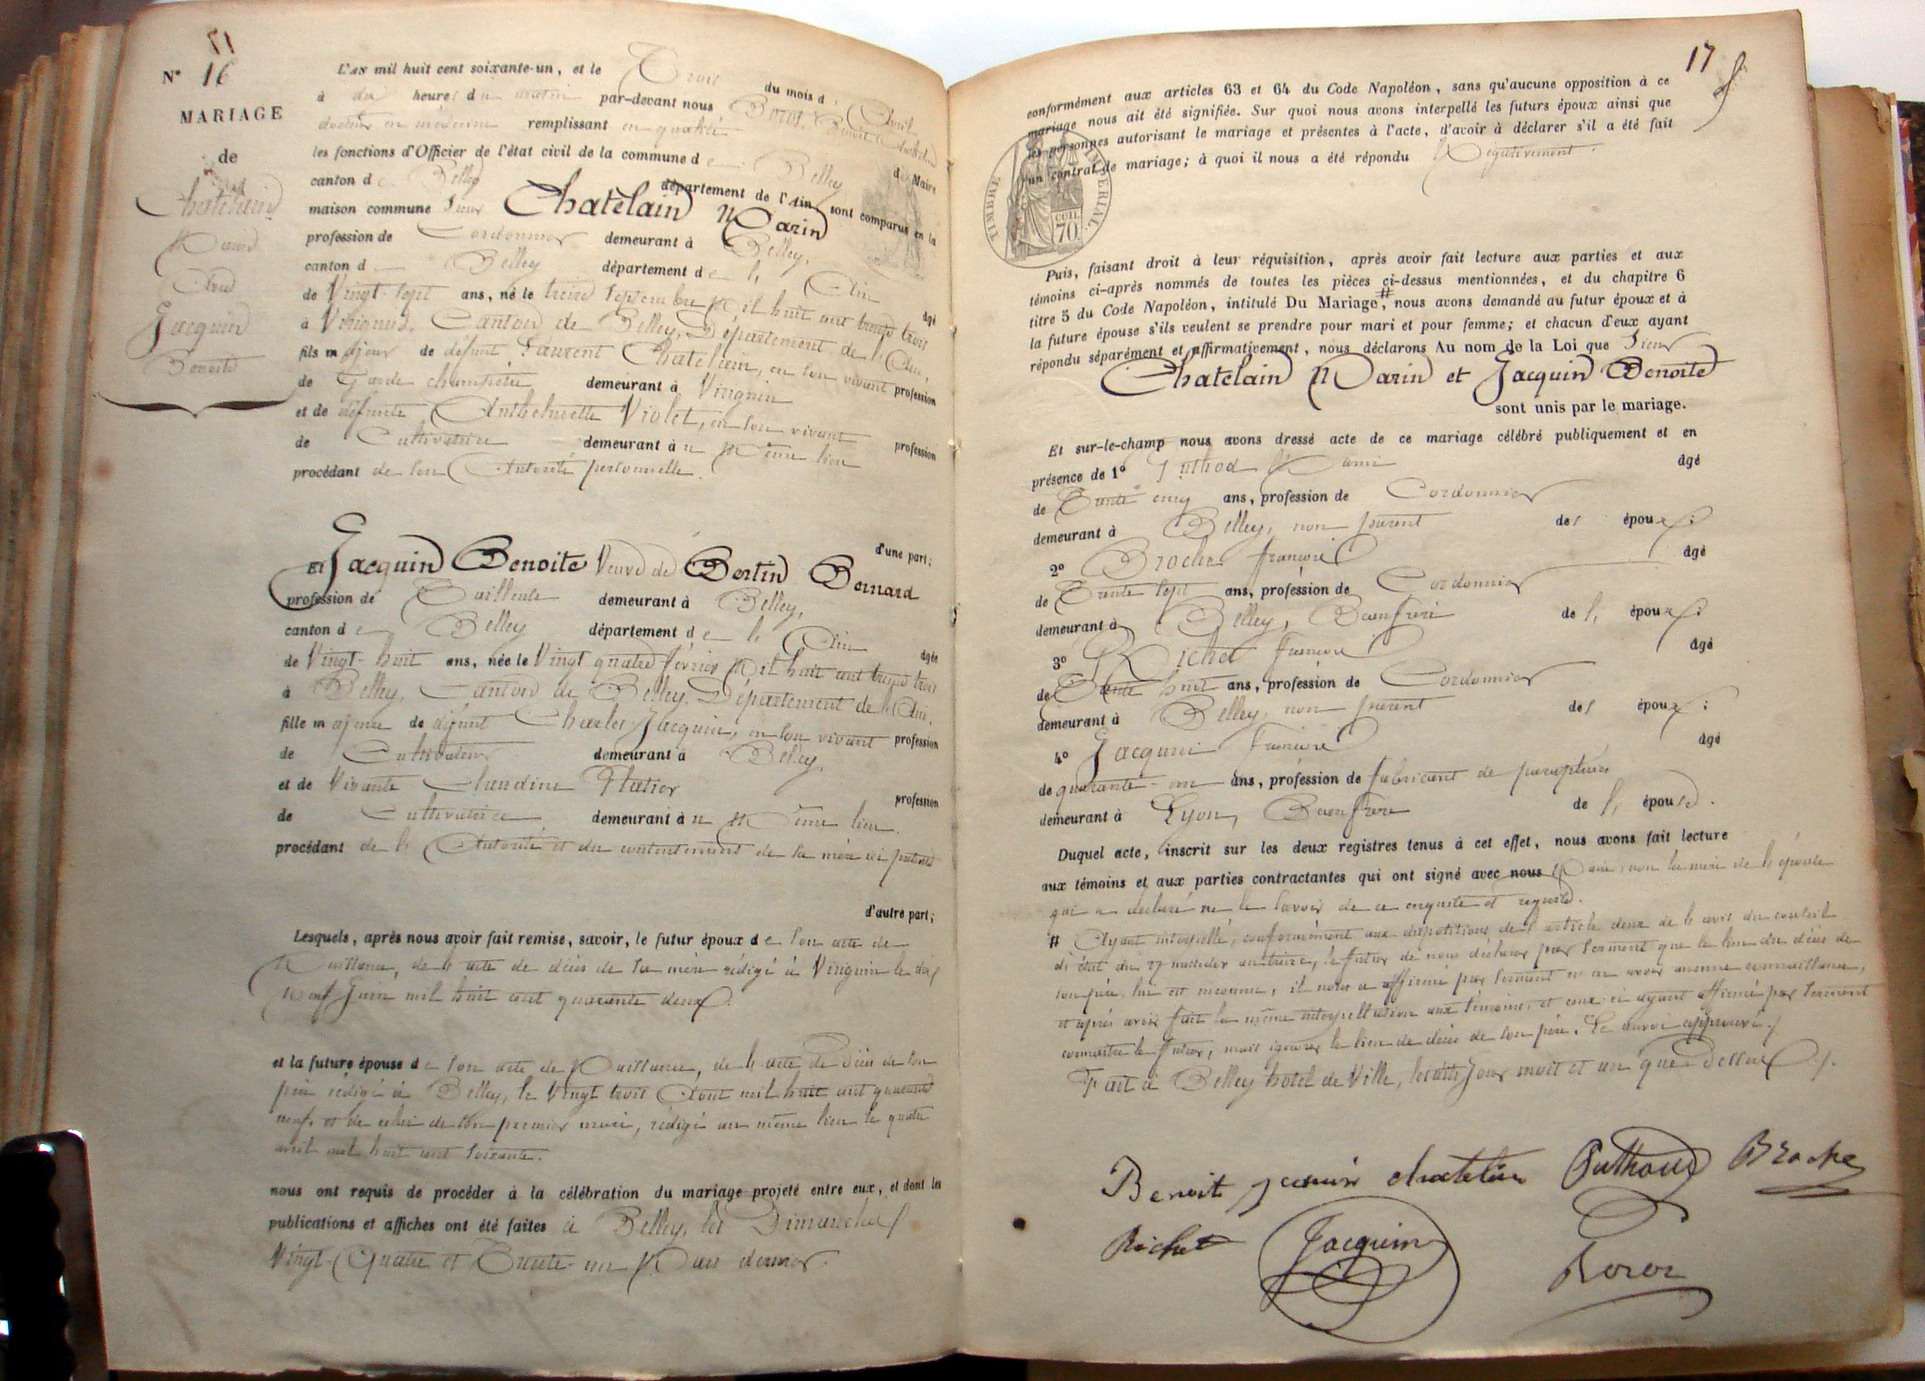 N° 16
MARIAGE
de
Chatelain
Marin
Et
Jacquin
Benoite
L'an mil huit cent soixante-un, et le Trois du mois d'Avril
à dix heures du matin par-devant nous
docteur en médecine remplissant en qualité d Maire
les fonctions d'Officier de l'état civil de la commune de Belley
canton de Belley département de l'Ain sont comparus en la
maison commune Sieur Chatelain Marin
profession de Cordonnier demeurant à Belley,
canton de Belley département de l'Ain âgé
de Vingt-sept ans, né le treize Septembre Mil huit cent trente trois
à Virignin, Canton de Belley, Département de l'Ain,
fils majeur de défunt Laurent Chatelain, en son vivant profession
de Garde champêtre demeurant à Virignin
et de défunte Anthelmette Violet, en son vivant profession
de Cultivatrice demeurant à u Même lieu
procédant de son Autorité personnelle.
d'une part;
Et Jacquin Benoite Veuve de Bertin Bernard
profession de Tailleuse demeurant à Belley,
canton de Belley département de l'Ain âgée
de Vingt-huit ans, née le Vingt quatre février Mil huit cent trente trois
à Belley, Canton de Belley, Département de l'Ain,
fille majeure de défunt Charles Jacquin, en son vivant profession
de Cultivateur demeurant à Belley,
et de Vivante Claudine profession
de Cultivatrice demeurant à u Même lieu.
procédant de l'Autorité et du consentement de sa mère ici présente
d'autre part;
Lesquels, après nous avoir fait remise, savoir, le futur époux de son acte de
Naissance, de l'acte de décès de sa mère rédigé à Virignin le dix
neuf Juin mil huit cent quarante deux.
et la future épouse de son acte de Naissance, de l'acte de Décès de son
père rédigé à Belley, le Vingt trois Aout mil huit cent quarante
neuf, et de celui de son premier mari, rédigé au même lieu le quatre
avril mil huit cent soixante.
nous ont requis de procéder à la célébration du mariage projeté entre eux, et dont les
publications et affiches ont été faites à Belley, les Dimanches
Vingt-Quatre et Trente-un Mars dernier.
17
conformément aux articles 63 et 64 du Code Napoléon, sans qu'aucune opposition à ce
mariage nous ait été signifiée. Sur quoi nous avons interpellé les futurs époux ainsi que
les personnes autorisant le mariage et présentes à l'acte, d'avoir à déclarer s'il a été fait
un contrat de mariage; à quoi il nous a été répondu Négativement.
TIMBRE IMPÉRIAL
CEN.
70
Puis, faisant droit à leur réquisition, après avoir fait lecture aux parties et aux
témoins ci-après nommés de toutes les pièces ci-dessus mentionnées, et du chapitre 6
titre 5 du Code Napoléon, intitulé Du Mariage, # nous avons demandé au futur époux et à
la future épouse s'ils veulent se prendre pour mari et pour femme; et chacun d'eux ayant
répondu séparément et affirmativement, nous déclarons Au nom de la Loi que Sieur
Chatelain Marin et Jacquin Benoite
sont unis par le mariage.
Et sur-le-champ nous avons dressé acte de ce mariage célébré publiquement et en
présence de 1° âgé
de Trente cinq ans, profession de Cordonnier
demeurant à Belley, non parent des époux;
2° Broche François âgé
de Trente sept ans, profession de Cordonnier
demeurant à Belley, Beaufrère de l'époux;
3° Richet François âgé
de Trente huit ans, profession de Cordonnier
demeurant à Belley, non parent des époux;
4° Jacquin François âgé
de quarante-un ans, profession de fabricant de parapluies
demeurant à Lyon, Beaufrère de l'épouse.
Duquel acte, inscrit sur les deux registres tenus à cet effet, nous avons fait lecture
aux témoins et aux parties contractantes qui ont signé avec nous Maire, non la mère de l'épouse
qui a déclaré ne le savoir de ce enquise et requise.
# Ayant interpellé, conformément aux dispositions de l'article deux de l'avis du conseil
d'état du 27 messidor an treize, le futur de nous déclarer par serment que le lieu du décès de
son père lui est inconnu, il nous a affirmé par serment n'en avoir aucune connaissance,
et après avoir fait la même interpellation aux témoins, et ceux-ci ayant affirmé par serment
connaître le futur, mais ignorer le lieu de décès de son père. Le renvoi approuvé.
Fait à Belley hotel de Ville, les dits jour mois et an que Dessus.
Benoit chatelain Puthod Broche
Richet Jacquin